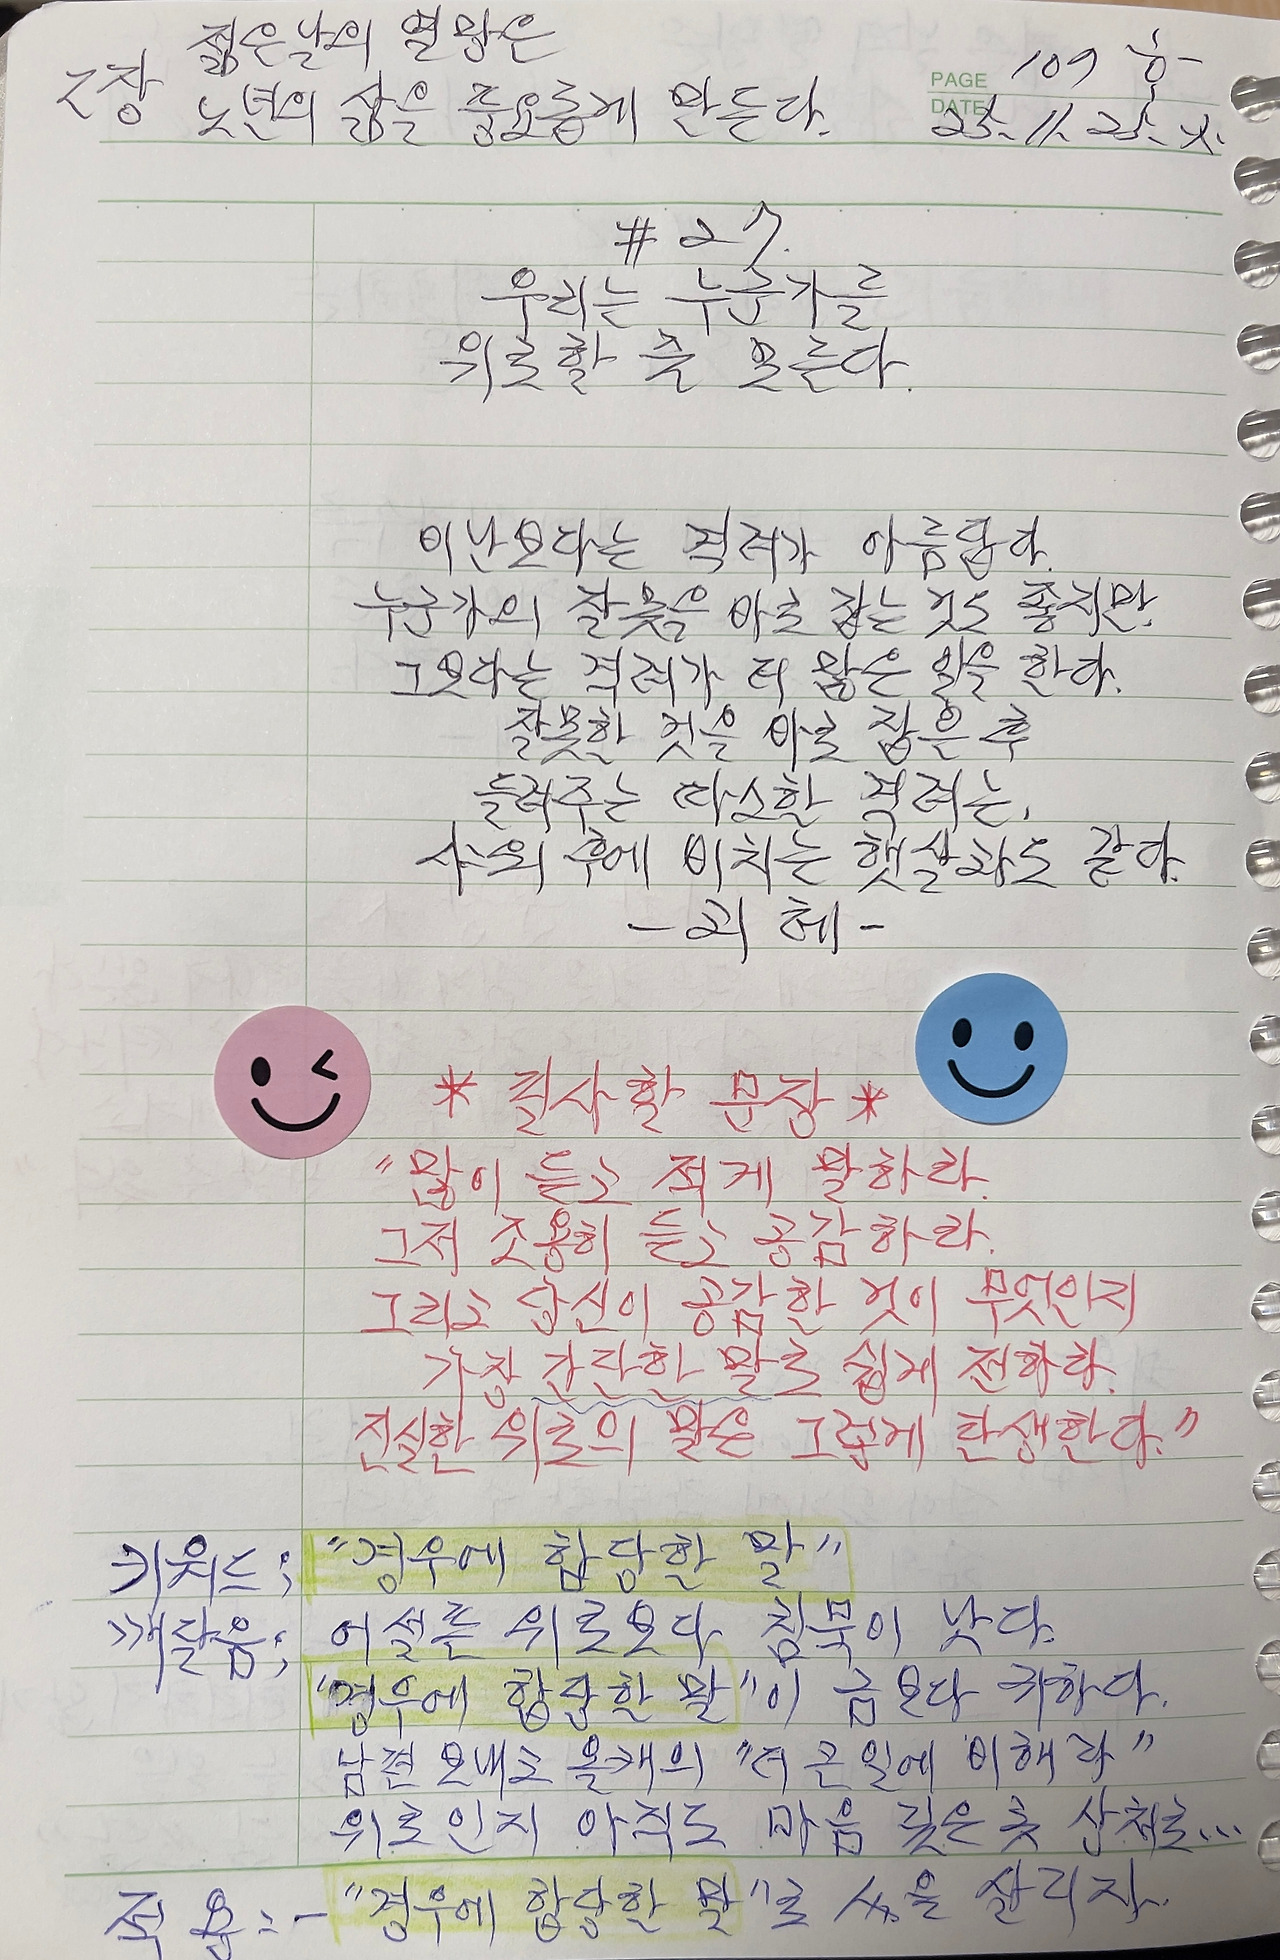 2장 젊은날의 열망은
노년의 삶을 풍요롭게 만든다.
PAGE 109
DATE 25. 11. 25. 화.
#27.
우리는 누군가를
위로할 줄 모른다.
비난보다는 격려가 아름답다.
누군가의 잘못을 바로 잡는 것도 좋지만
그보다는 격려가 더 많은 일을 한다.
잘못한 것을 바로 잡은 후
들려주는 따스한 격려는,
샤워 후에 비치는 햇살과도 같다.
-괴테-
* 필사할 문장 *
"많이 듣고 적게 말하라.
그저 조용히 듣고 공감하라.
그리고 당신이 공감한 것이 무엇인지
가장 간단한 말로 쉽게 전하라.
진실한 위로의 말은 그렇게 탄생한다."
키워드; "경우에 합당한 말"
깨달음; 어설픈 위로보다 침묵이 낫다.
"경우에 합당한 말"이 금보다 귀하다.
남편 보내고 올케의 "더 큰일에 비해라"
위로인지 아직도 마음 깊은 곳 상처로...
적용:- "경우에 합당한 말"로 살리자.